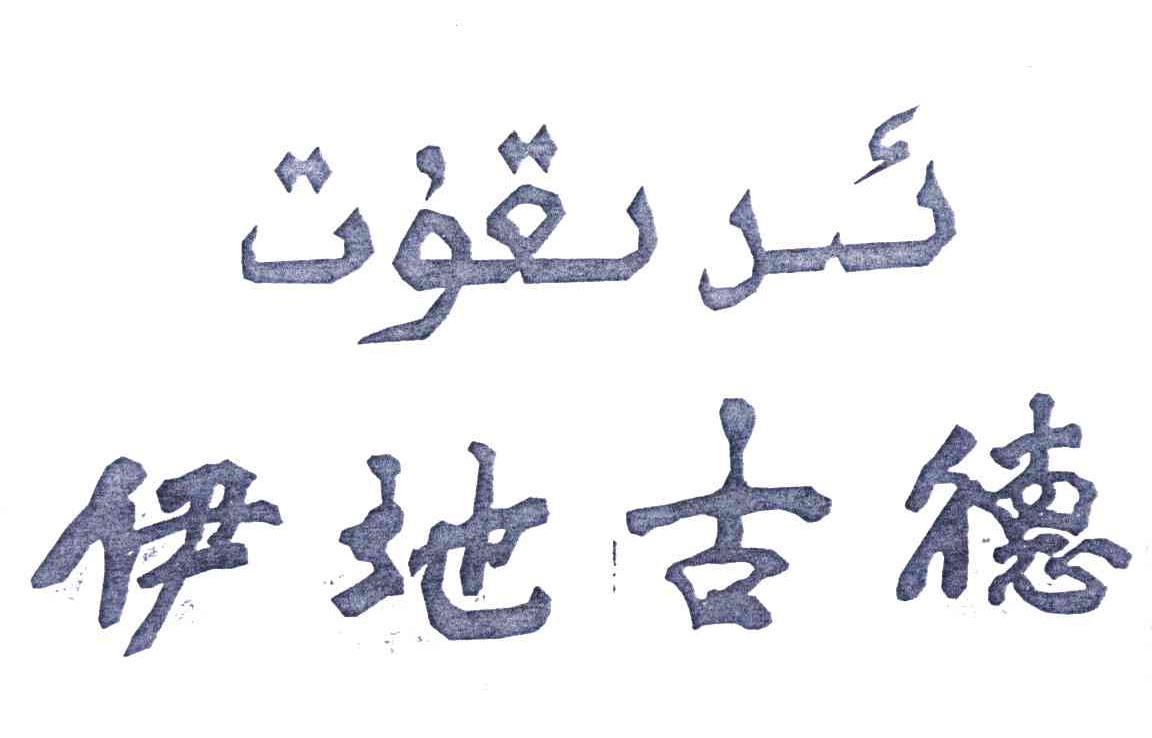 ئىدىقۇت
伊地古德